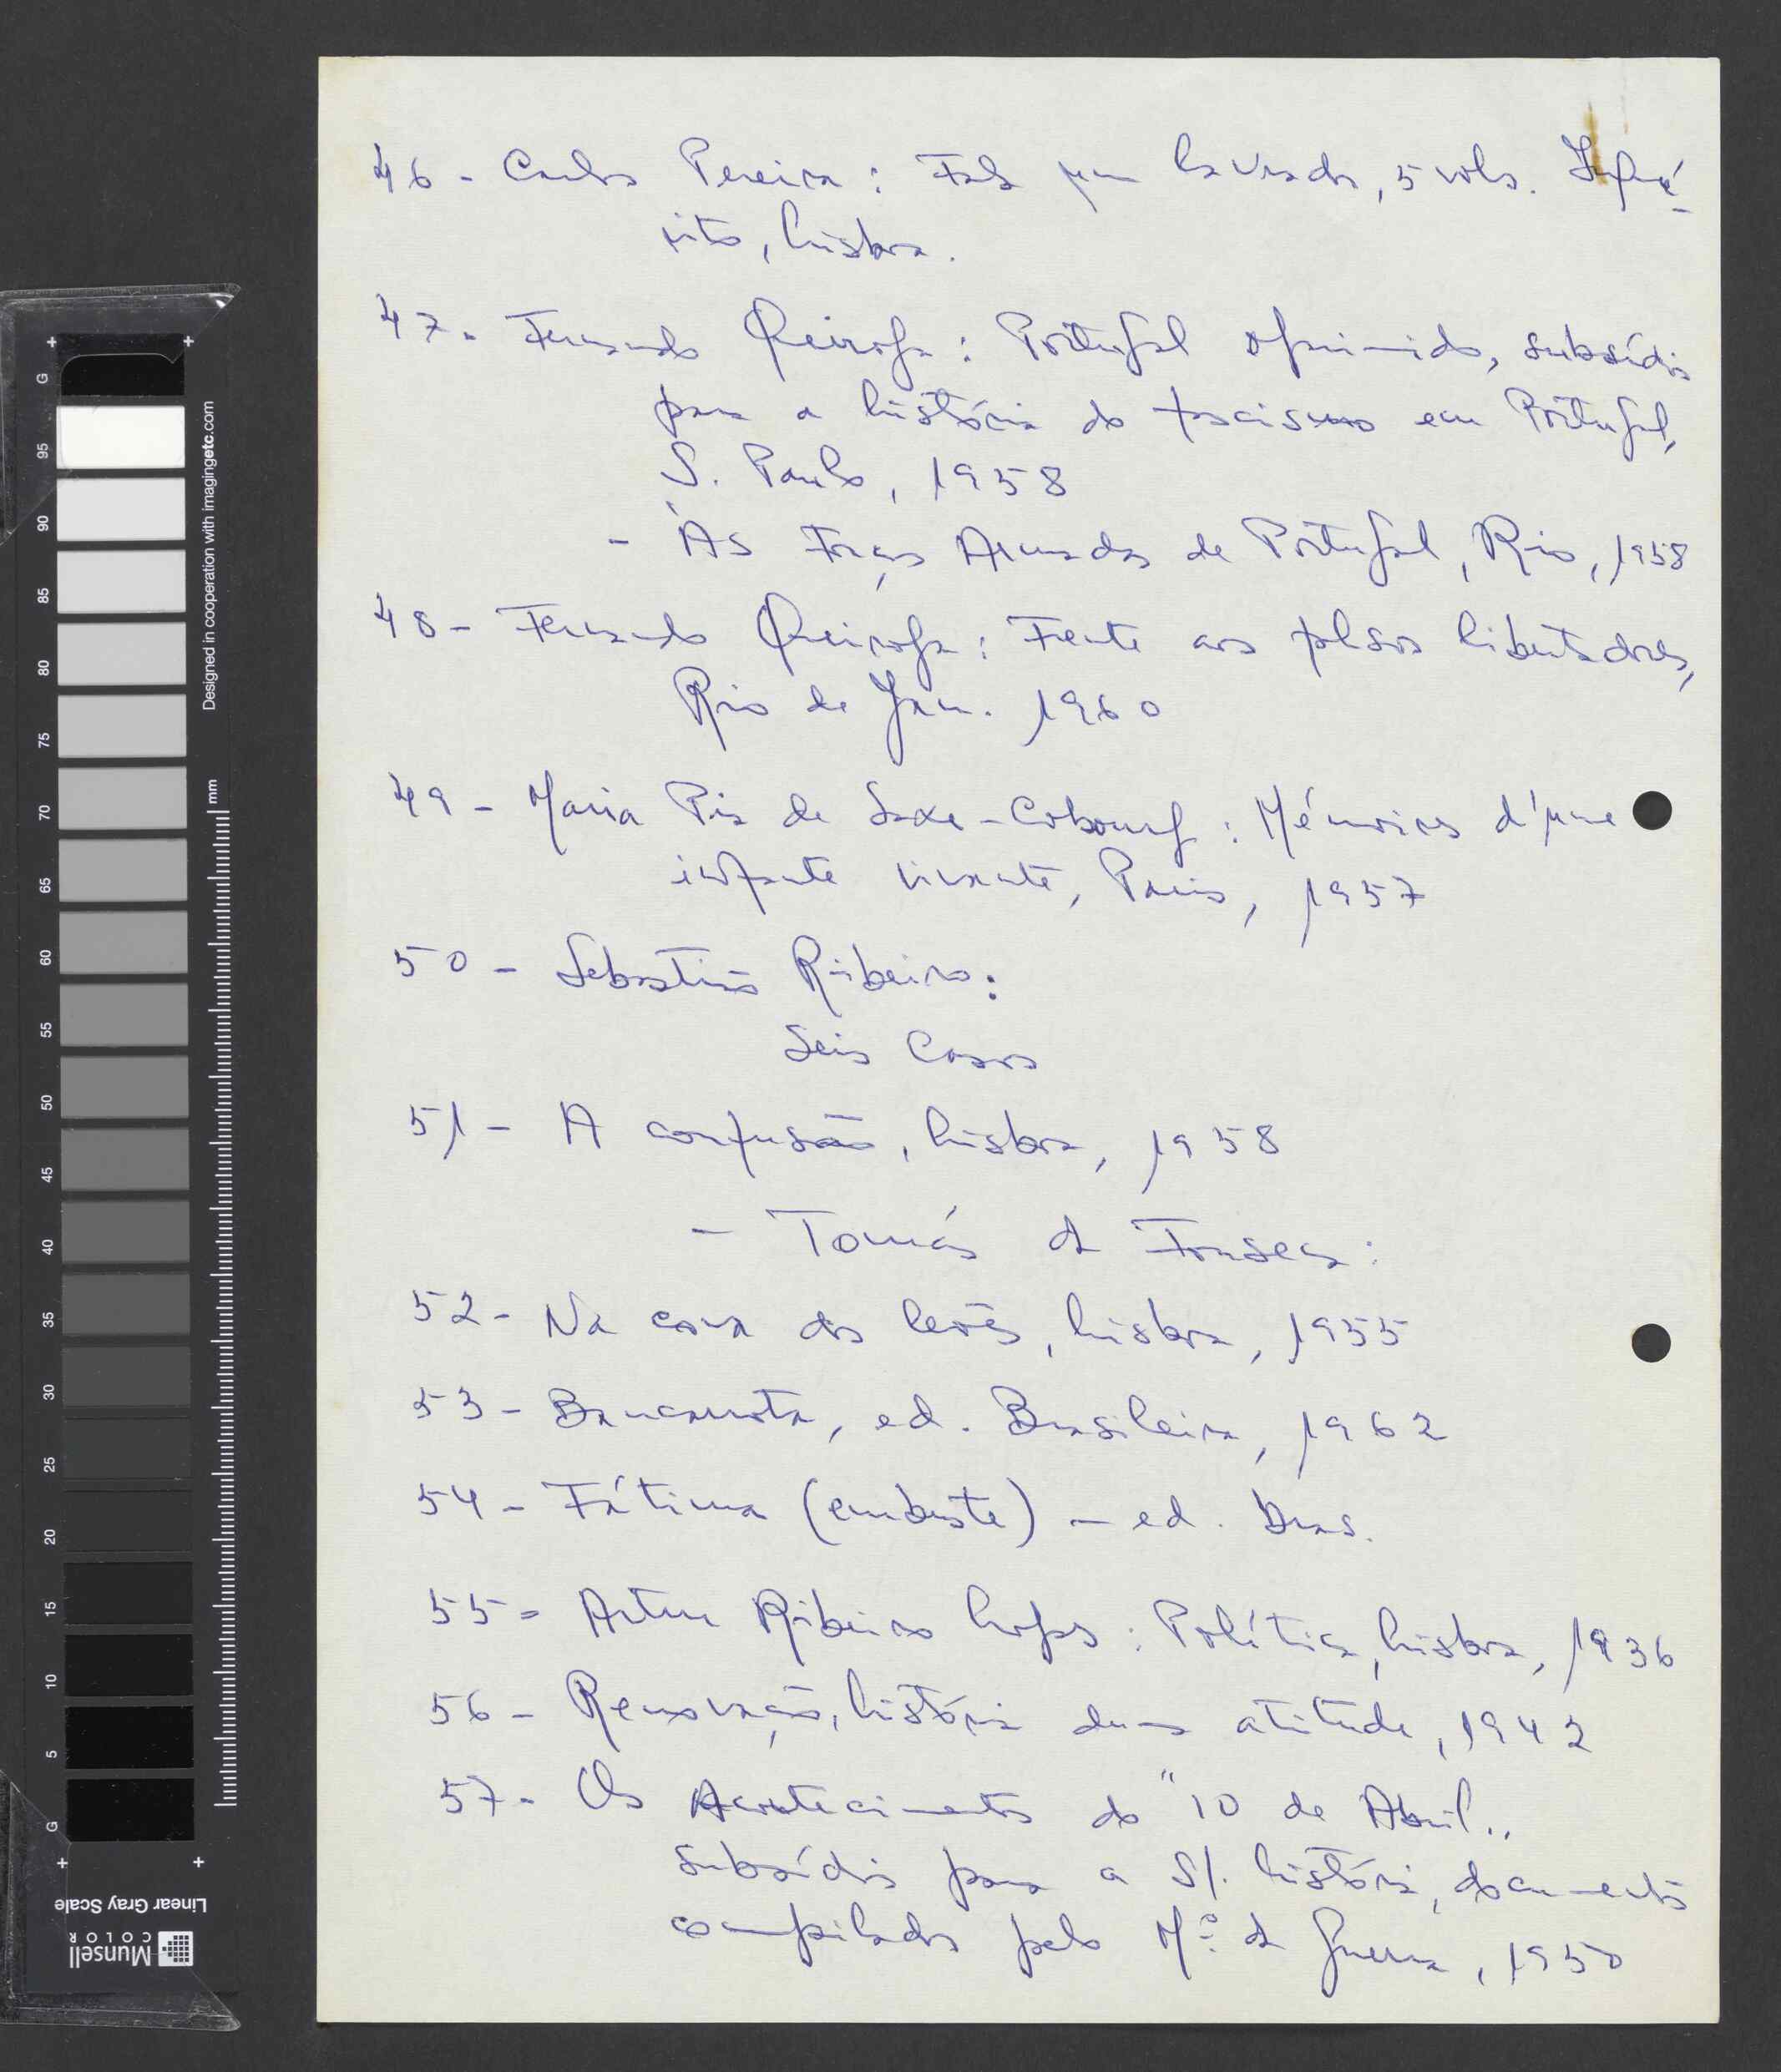 46 - Carlos Pereira: Fala um lavrador, 5 vols. Inqué-
rito, Lisboa.
47 - Fernando Queiroga: Portugal oprimido, subsídios
para a história do fascismo em Portugal,
S. Paulo, 1958
- Às Forças Armadas de Portugal, Rio, 1958
48 - Fernando Queiroga: Frente aos falsos libertadores,
Rio de Jan. 1960
49 - Maria Pia de Saxe-Cobourg: Mémoires d'une
infante vivante, Paris, 1957
50 - Sebastião Ribeiro:
Seis Casos
51 - A confusão, Lisboa, 1958
- Tomás da Fonseca:
52 - Na cova dos leões, Lisboa, 1955
53 - Bancarrota, ed. Brasileira, 1962
54 - Fátima (embuste) - ed. bras.
55 - Artur Ribeiro Lopes: Política, Lisboa, 1936
56 - Renovação, história duma atitude, 1942
57 - Os Acontecimentos do "10 de Abril",
subsídios para a s/. história, documentos
compilados pelo Mº. da Guerra, 1950
G 95 90 85 80 75 70 65 60 55 50 45 40 35 30 25 20 15 10 5 G
Designed in cooperation with imagingetc.com
mm
Linear Gray Scale
Munsell
COLOR